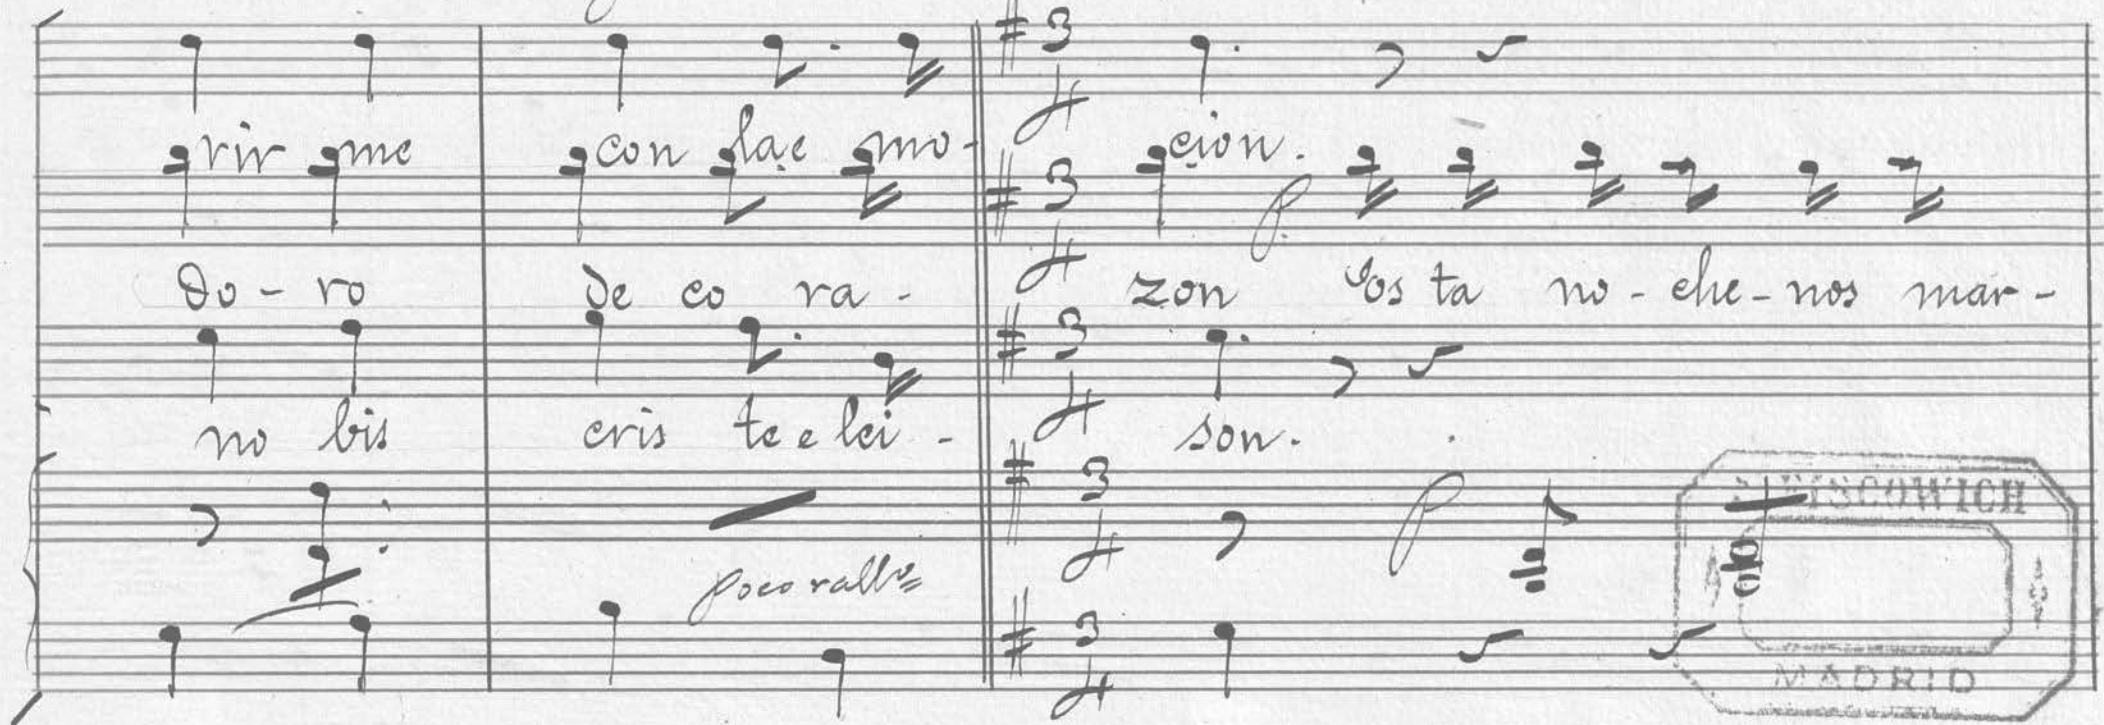 rir me con lae mo- cion.
do-ro de co ra- zon Es ta no-che-nos mar-
no bis cris te e lei- son.
poco rallº
MADRID